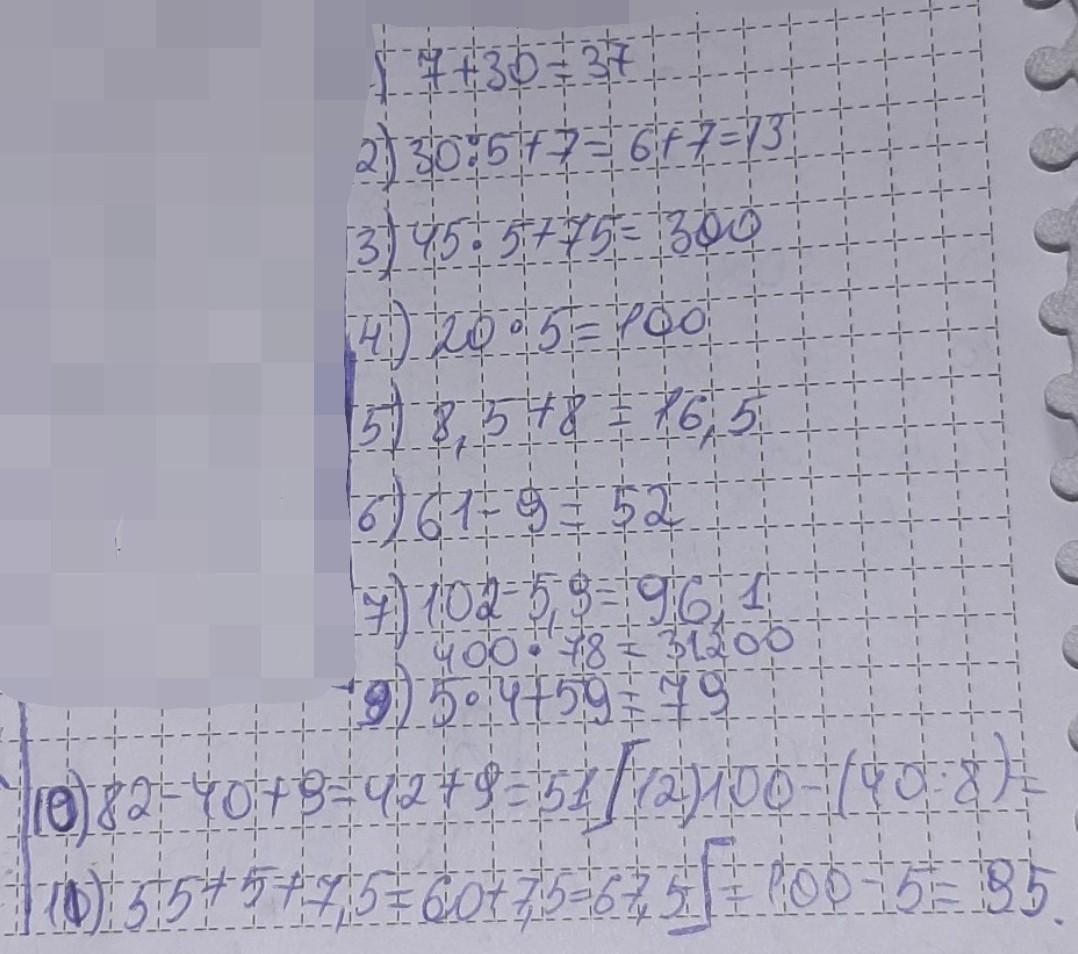 ) 7+30=37
2) 30:5+7= 6+7=13
3) 45·5+75= 300
4) 20·5=100
5) 8,5+8 = 16,5
6) 61-9= 52
7) 102-5,9= 96,1
400·78=31200
9) 5·4+59=79
10) 82-40+9=42+9=51 12) 100-(40:8)=
11) 55+5+7,5=60+7,5=67,5 =100-5=95.